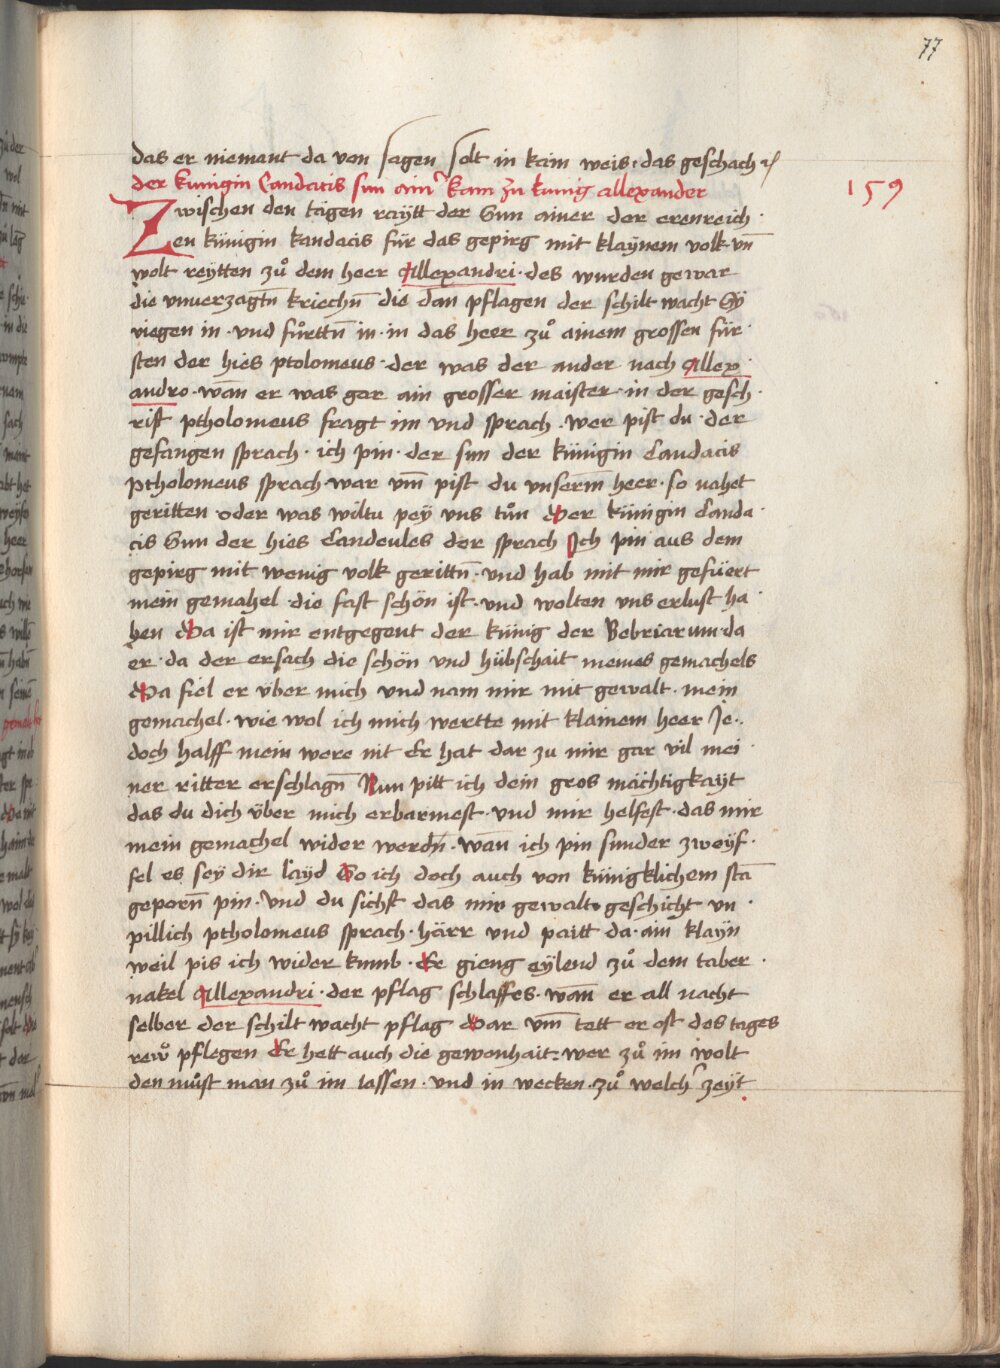 77
das er niemant da von sagen solt in kain weis · das geschach ꝛc
der kunigin Candacis sun ainr̃ kam zu kunig allexander
159
Zwischen den tägen raytt der Sun ainer der erenreich ·
Zen künigin kandacis für das gepirg mit klaynem volk · vn̄
wolt reytten zů dem heer Allexandri · des wurden gewar
die vnuerzagtn̄ kriechn̄ die dan̄ pflagen der schilt wacht Sy
viegen in · vnd fůrttn̄ in · in das heer zů ainem grossen für ·
sten der hies ptolomeus · der was der ander nach Allex ·
andro · wan̄ er was gar ain grosser maister · in der gesch ·
rift ptholomeus fragt im vnd sprach · wer pist du · der
gefangen sprach · ich pin · der sun der künigin Candacis
Ptholomeus sprach · war vm̄ pist du vnserm̄ heer · so nahet
geritten · oder was wiltu pey vns tůn Der künigin Canda ·
cis Sun der hies Candeules der sprach Ich pin aus dem
gepirg mit wenig volk gerittn̄ · vnd hab mit mir gefüert
mein gemahel · die fast schön ist · vnd wolten vns erlust ha ·
ben Da ist mir entgegent der künig der Bebriarum · da
er · da der ersach die schön vnd hübschait meines gemachels
Da fiel er über mich vnd nam mir mit gewalt · mein
gemachel · wie wol ich mich wertte mit klainem heer Je ·
doch halff mein were nit Er hat dar zu mir gar vil mei ·
ner ritter erschlagn̄ Nun pitt ich dein gros mächtigkayt
das du dich über mich erbarmest · vnd mir helfest · das mir
mein gemachel wider werdn̄ · wan̄ ich pin sunder zweyf ·
fel es sey dir layd So ich doch auch von künigklichem sta̅
geporn̄ pin · Vnd du sichst das mir gewalt geschicht vn ·
pillich ptholomeus sprach · härr vnd paitt da · ain klayn
weil pis ich wider kumb · Er gieng eylend zů dem taber ·
nakel Allexandri · der pflag schlaffes · wan̄ er all nacht
selber der schilt wacht pflag Dar vm̄ tett er oft des tages
reẘ pflegen Er hett auch die gewonhait : wer zů im wolt
den můst man zů im lassen · vnd in wecken · zů welchr̃ zeyt